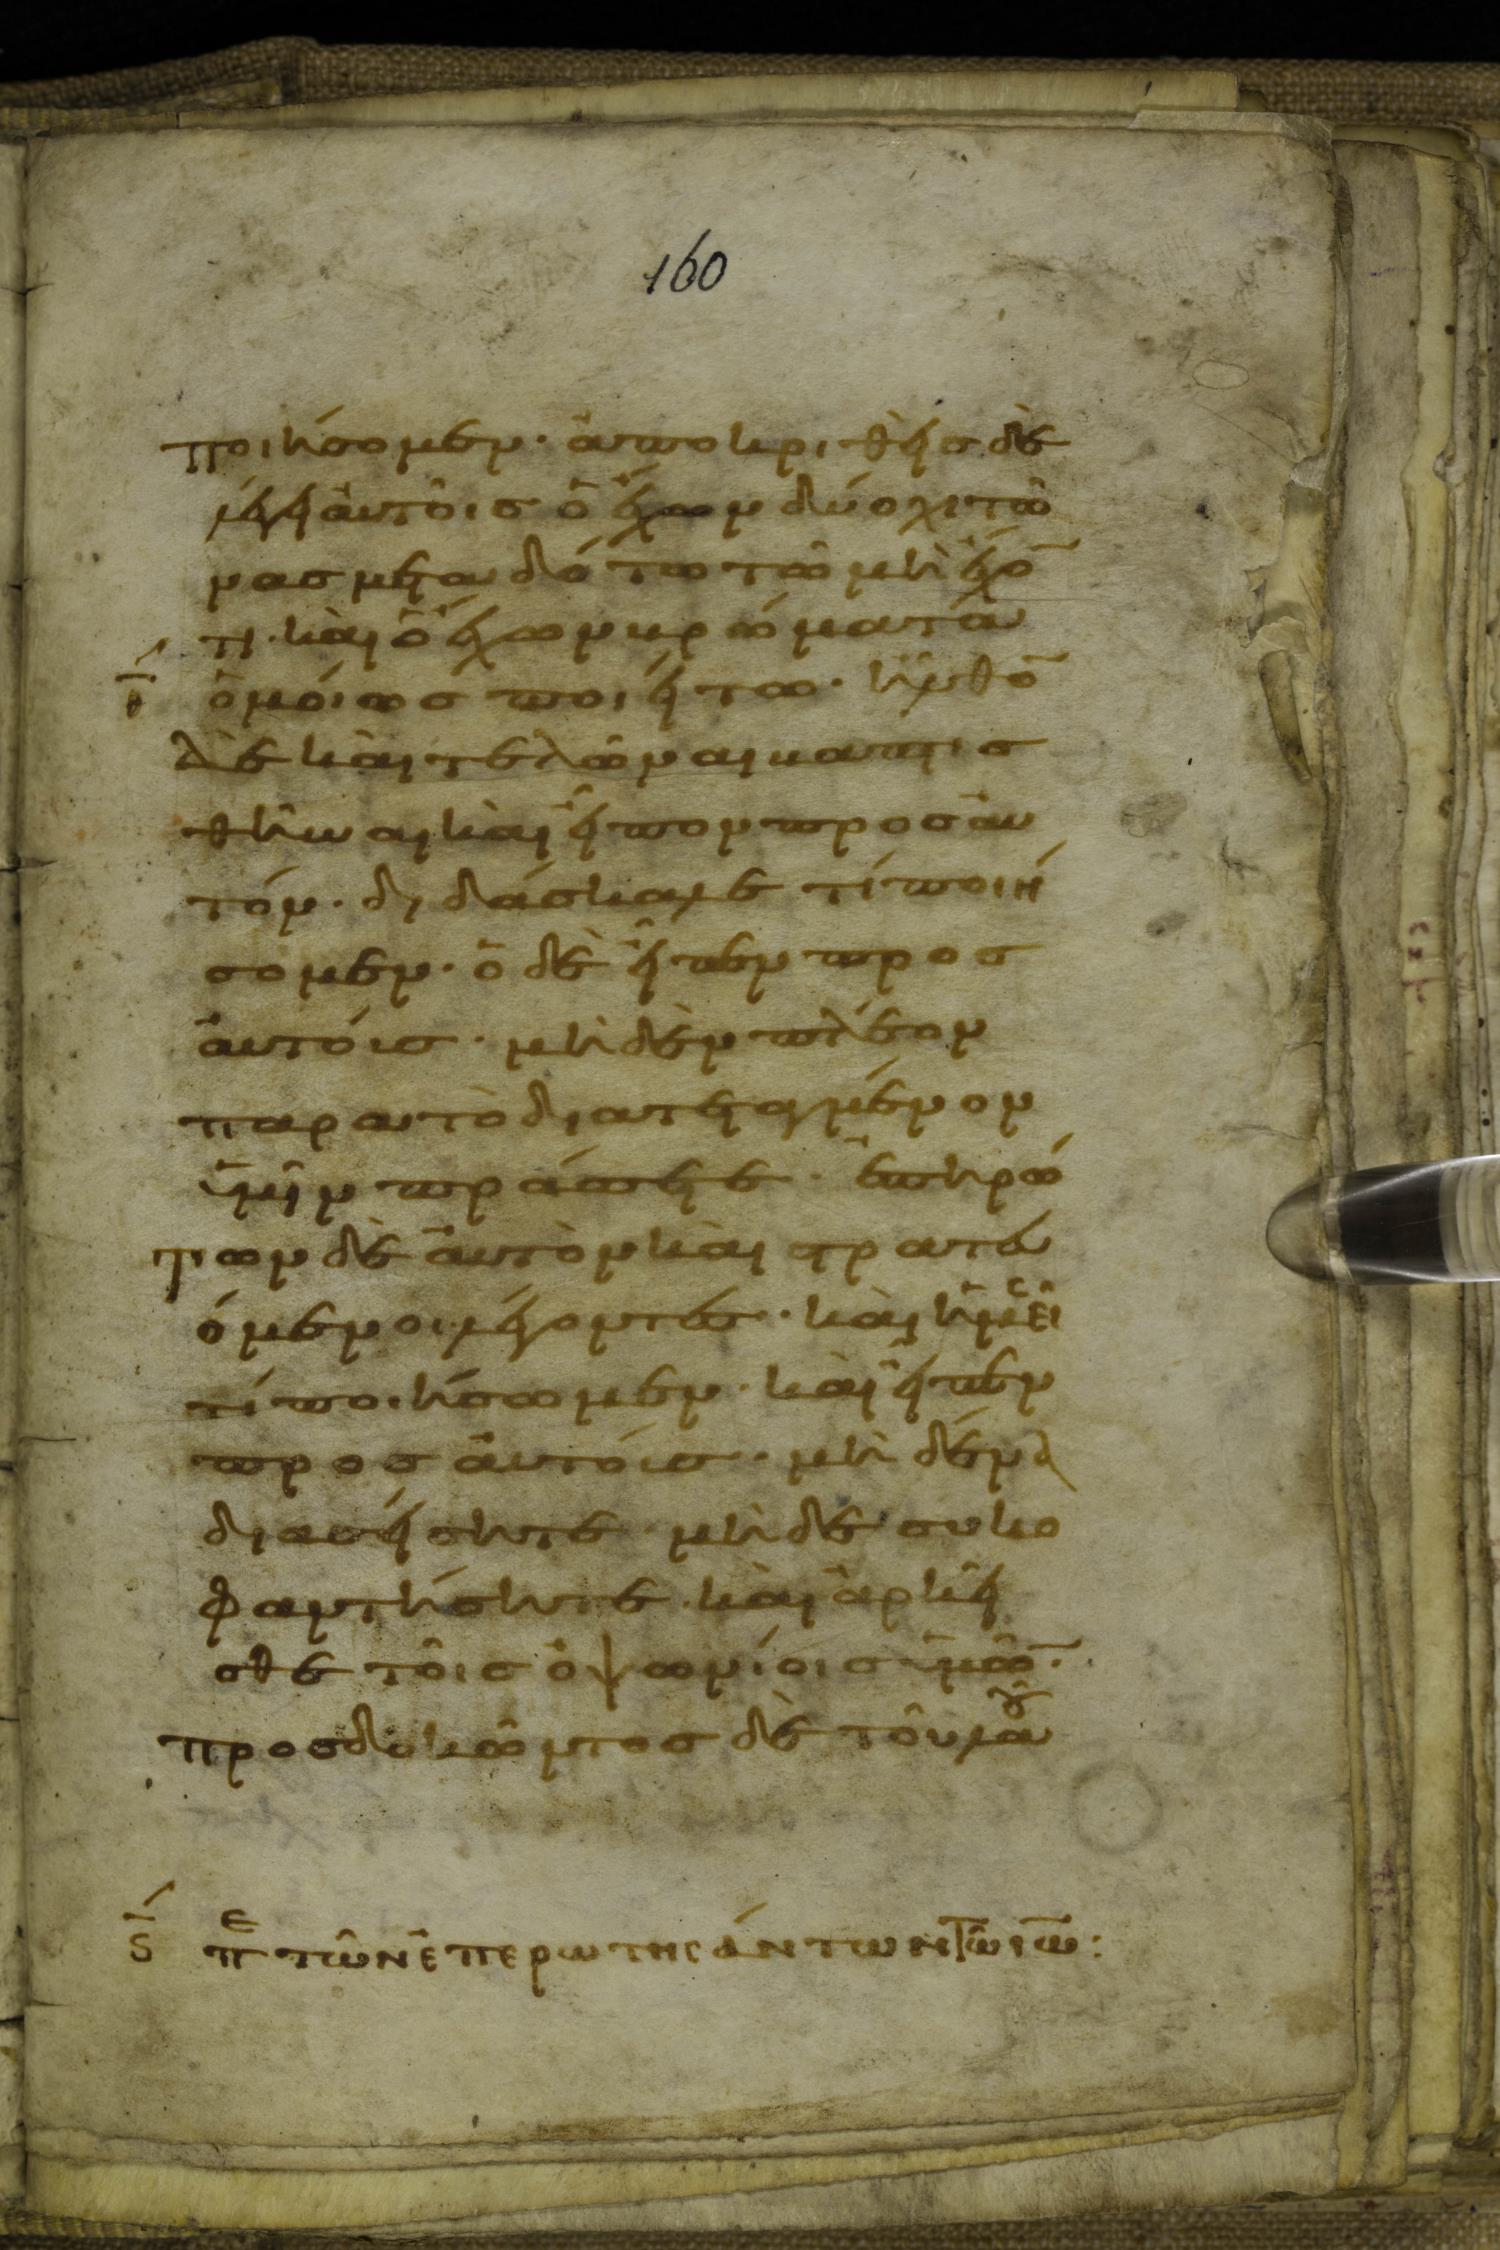 160
ποιήσομεν· ἀποκριθεὶς δὲ
λέγει ἀυτοῖς ὁ ἔχων δύο χιτῶ
νας μεταδότω τῶ μὴ ἔχο̄
τι· καὶ ὁ ἔχων βρώματα
ὁμοίως ποιείτω· ἦλθο̄
δὲ καὶ τελῶναι βαπτισ
θῆναι καὶ εἶπον προς ἀυ
τόν· διδάσκαλε τί ποιή
σομεν· ὁ δὲ εἶπεν προς
ἀυτόυς· μὴδὲν πλέον
παρα τὸ διατεταγμένον
ὑμῖν πράσσετε· ἐπηρώ
των δὲ ἀυτὸν καὶ στρατευ
όμενοι λέγοντες· καὶ ἡμεῖς
τί ποιήσωμεν· καὶ εἶπεν
προς ἀυτόυς· μὴδένα
διασείσητε μὴδὲ συκο
φαντήσητε· καὶ ἀρκεῖ
σθε τοῖς ὀψωνίοις ὑμῶ̄·
προσδοκῶντος δὲ τοῦ λαοῦ
ς̄ πε τῶν ἐπερωτησάντων τῶ ιω̄: